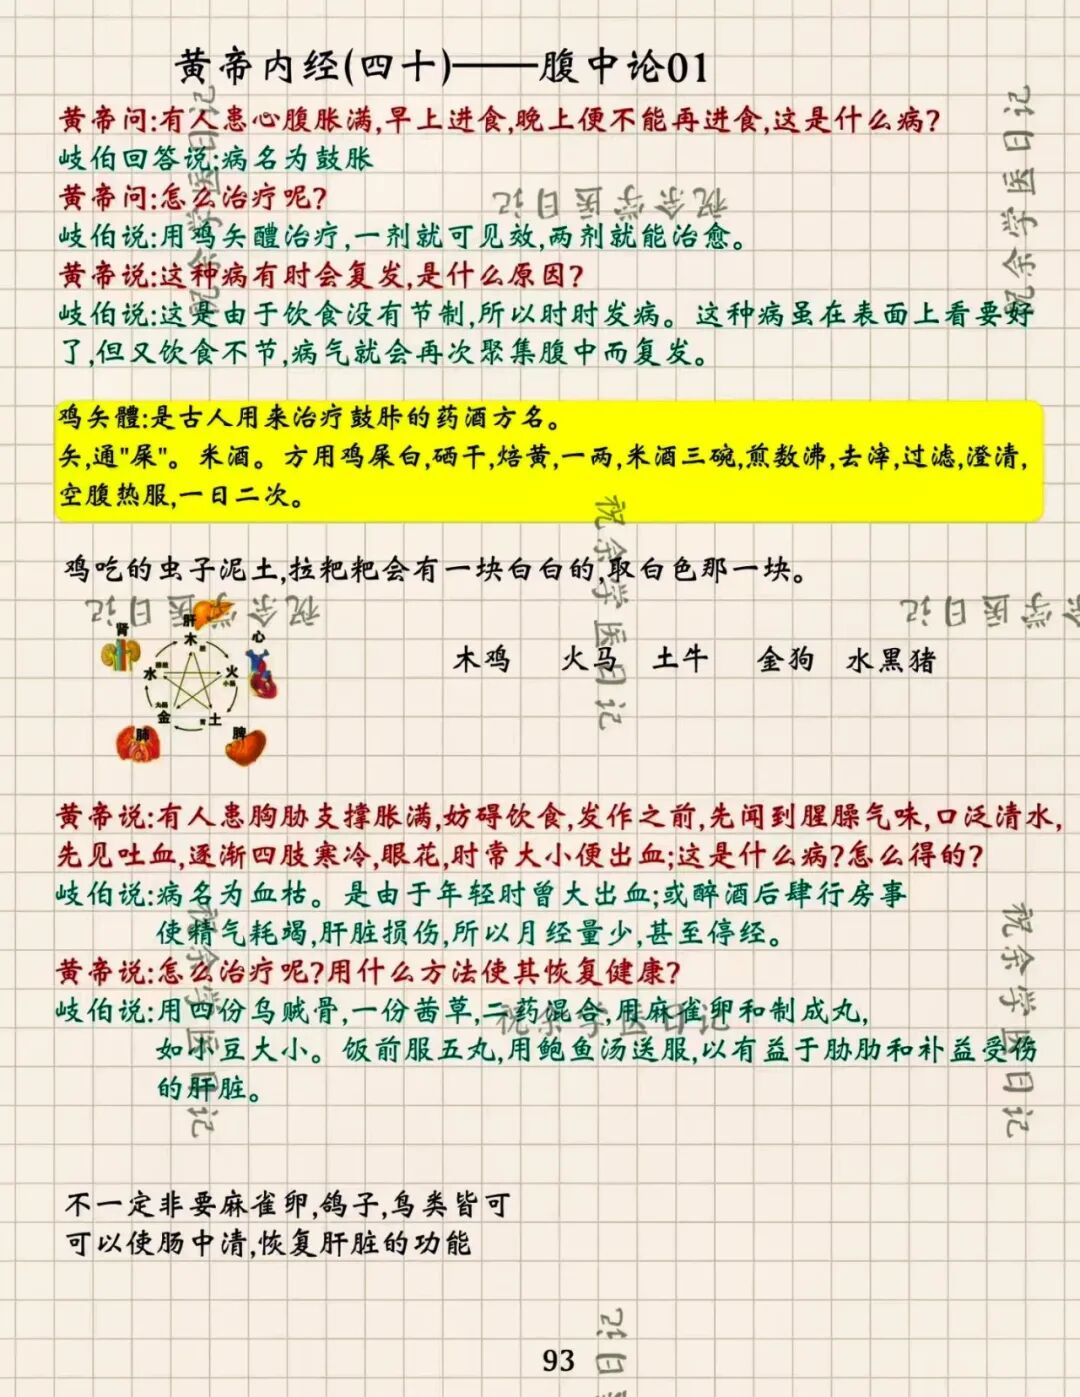 黄帝内经(四十)——腹中论01
黄帝问:有人患心腹胀满,早上进食,晚上便不能再进食,这是什么病?
岐伯回答说:病名为鼓胀
黄帝问:怎么治疗呢?
岐伯说:用鸡矢醴治疗,一剂就可见效,两剂就能治愈。
黄帝说:这种病有时会复发,是什么原因?
岐伯说:这是由于饮食没有节制,所以时时发病。这种病虽在表面上看要好
了,但又饮食不节,病气就会再次聚集腹中而复发。
鸡矢體:是古人用来治疗鼓胩的药酒方名。
矢,通"屎"。米酒。方用鸡屎白,硒干,焙黄,一两,米酒三碗,煎数沸,去滓,过滤,澄清,
空腹热服,一日二次。
鸡吃的虫子泥土,拉粑粑会有一块白白的,取白色那一块。
肝
木
肾
心
水
火
金
土
肺
脾
木鸡 火马 土牛 金狗 水黑猪
黄帝说:有人患胸胁支撑胀满,妨碍饮食,发作之前,先闻到腥臊气味,口泛清水,
先见吐血,逐渐四肢寒冷,眼花,时常大小便出血;这是什么病?怎么得的?
岐伯说:病名为血枯。是由于年轻时曾大出血;或醉酒后肆行房事
使精气耗竭,肝脏损伤,所以月经量少,甚至停经。
黄帝说:怎么治疗呢?用什么方法使其恢复健康?
岐伯说:用四份乌贼骨,一份茜草,二药混合,用麻雀卵和制成丸,
如小豆大小。饭前服五丸,用鲍鱼汤送服,以有益于胁肋和补益受伤
的肝脏。
不一定非要麻雀卵,鸽子,鸟类皆可
可以使肠中清,恢复肝脏的功能
93
祝余学医日记
祝余学医日记
祝余学医日记
祝余学医日记
祝余学医日记
祝余学医日记
祝余学医日记
祝余学医日记
祝余学医日记